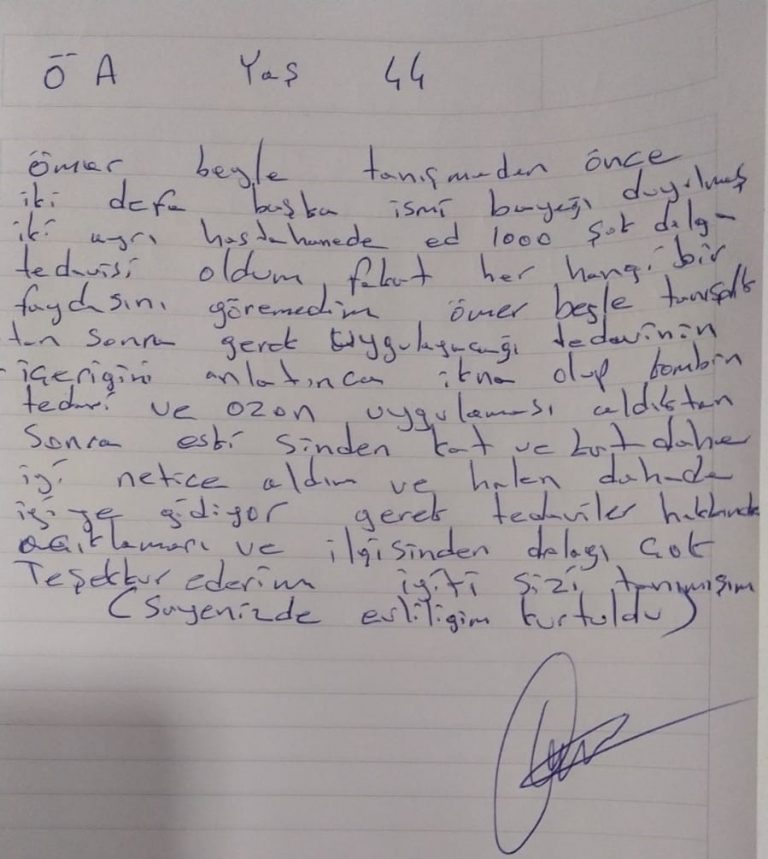 Ö A Yaş 44
Ömer beyle tanışmadan önce
iki defa başka ismi bayağı duyulmuş
iki ayrı hastahanede ed 1000 şok dalga
tedavisi oldum fakat her hangi bir
faydasını göremedim ömer beyle tanıştık
tan sonra gerek uygulayacağı tedavinin
içeriğini anlatınca ikna olup kombin
tedavi ve ozon uygulaması aldıktan
Sonra eski sinden kat ve kat daha
iyi netice aldım ve halen dahada
iyi ye gidiyor gerek tedaviler hakkında
açıklaması ve ilgisinden dolayı çok
Teşekkur ederim iyiki sizi tanımışım
(Sayenizde evliliğim kurtuldu)